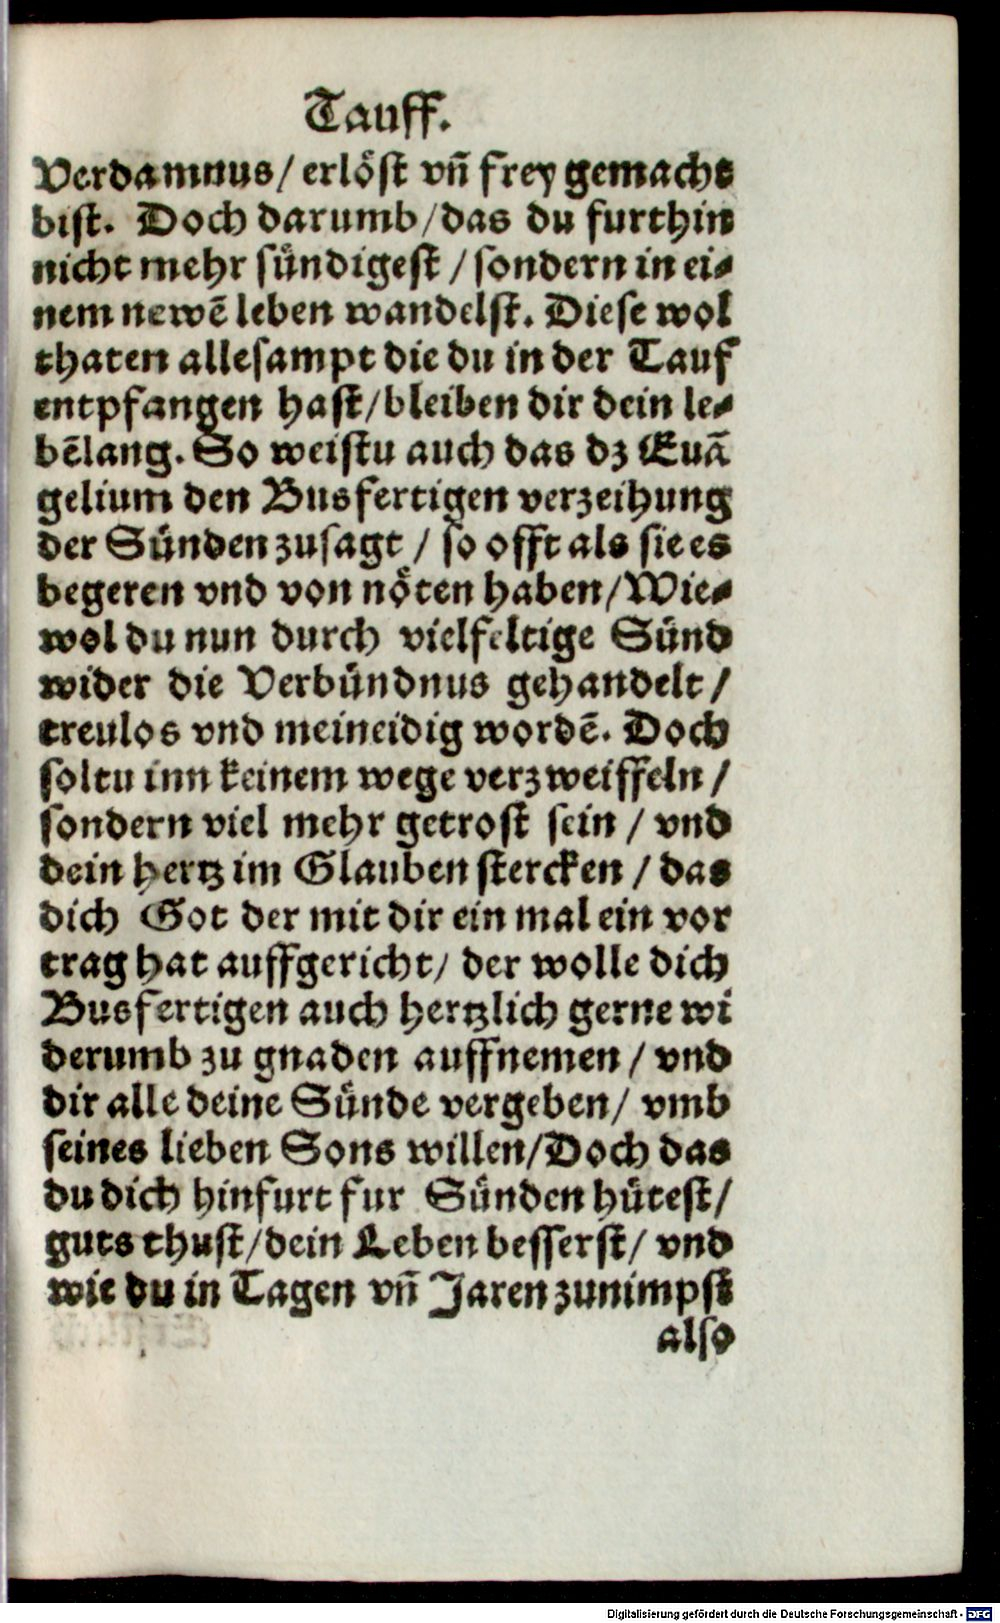 Tauff.
Verdamnus/ erlöst vñ frey gemacht
bist. Doch darumb/das du furthin
nicht mehr sündigest / sondern in ei-
nem newẽ leben wandelst. Diese wol
thaten allesampt die du in der Tauf
entpfangen hast/bleiben dir dein le-
bẽlang. So weistu auch das dz Euã
gelium den Busfertigen verzeihung
der Sünden zusagt / so offt als sie es
begeren vnd von nöten haben/Wie-
wol du nun durch vielfeltige Sünd
wider die Verbündnus gehandelt /
treulos vnd meineidig wordẽ. Doch
soltu inn keinem wege verzweiffeln /
sondern viel mehr getrost sein / vnd
dein hertz im Glauben stercken / das
dich Got der mit dir ein mal ein vor
trag hat auffgericht/ der wolle dich
Busfertigen auch hertzlich gerne wi
derumb zu gnaden auffnemen / vnd
dir alle deine Sünde vergeben/ vmb
seines lieben Sons willen/Doch das
du dich hinfurt fur Sünden hütest/
guts thust/dein Leben besserst/ vnd
wie du in Tagen vñ Jaren zunimpst
also
Digitalisierung gefördert durch die Deutsche Forschungsgemeinschaft - DFG